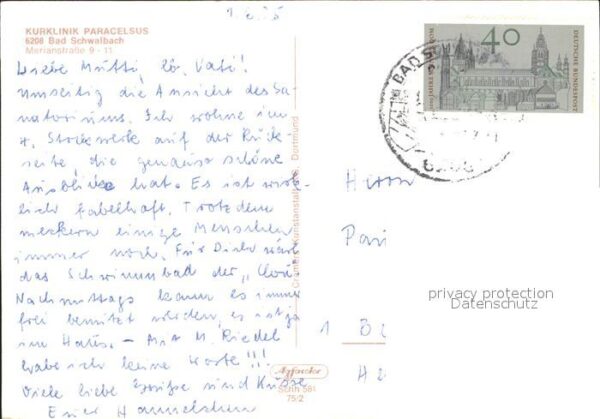 1.6.75
KURKLINIK PARACELSUS
6208 Bad Schwalbach
Merianstraße 9 - 11
Liebe Mutti, lb. Vati!
Umseitig die Ansicht des Sa-
natoriums. Ich wohne im
4. Stockwerk auf der Rück-
seite, die genauso schöne
Ausblicke hat. Es ist wirk-
lich fabelhaft. Trotzdem
meckern einige Menschen
immer noch. Für Dich wär
das Schwimmbad der
Nachmittags kann es immer
frei benutzt werden, es ist ja
im Haus. - M. Riedel
habe ich keine Worte!!!
Viele liebe Grüße und Küsse
Euer
Cramers Kunstanstalt Dortmund
Schn 581
75/2
40
DEUTSCHE BUNDESPOST
BAD SCHW
Herrn
1
privacy protection
Datenschutz